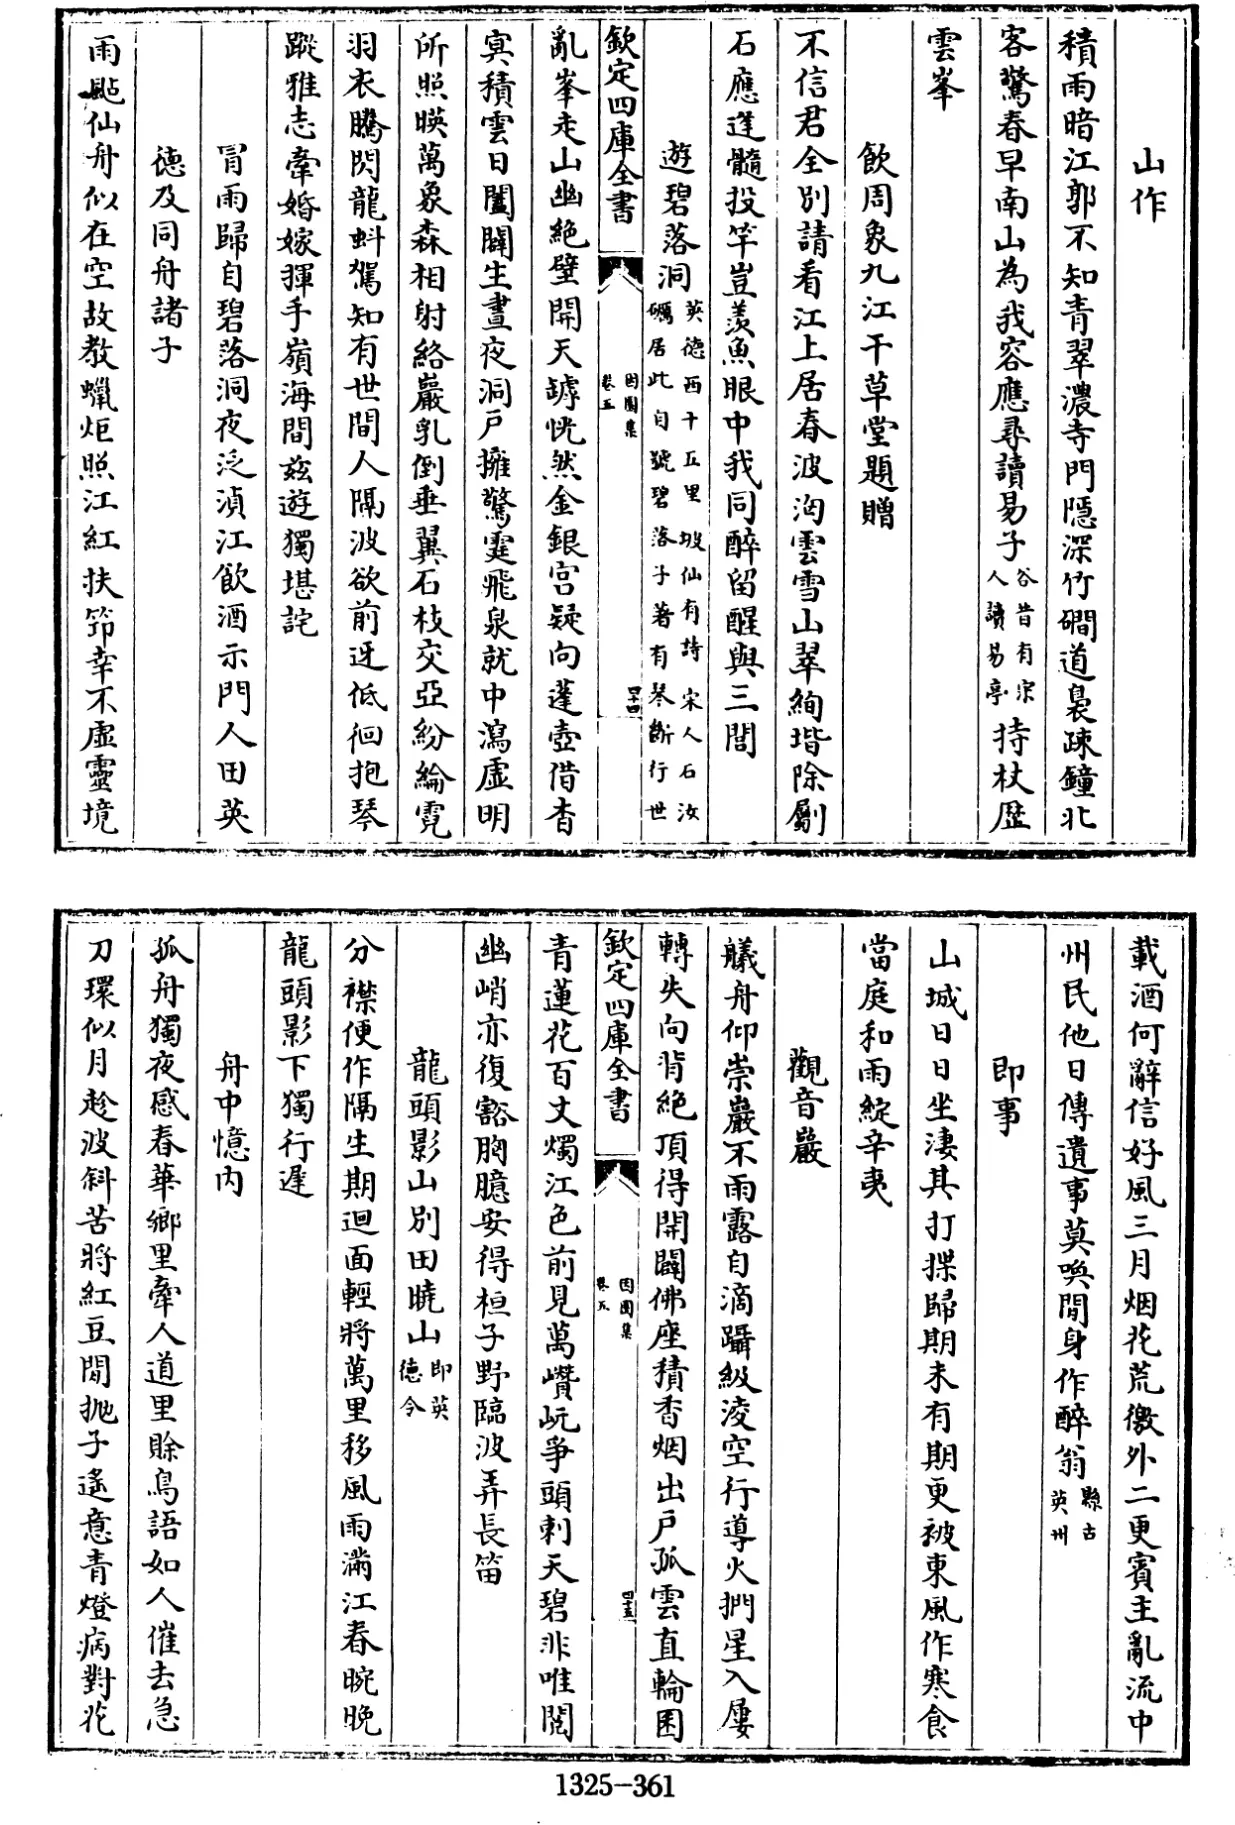 山作
積雨暗江郭不知青翠濃寺門隱深竹磵道裊疎鐘北
客驚春早南山為我容應尋讀易子谷昔有宗人讀易亭持杖歷
雲峯
飲周象九江干草堂題贈
不信君全別請看江上居春波淘雲雪山翠絢堦除劚
石應逢髓投竿豈羨魚眼中我同醉留醒與三閭
遊碧落洞英德西十五里坡仙有詩宋人石汝礪居此自號碧落子著有琴斷行世
欽定四庫全書 因園集 卷五 四十四
亂峯走山幽絶壁開天罅恍然金銀宫疑向蓬壺借杳
寘積雲日闔闢生晝夜洞戶擁驚霆飛泉就中瀉虛明
所照暎萬象森相射絡巖乳倒垂翼石枝交亞紛綸霓
羽衣騰閃龍蚪駕知有世間人隔波欲前迓低徊抱琴
蹤雅志牽婚嫁揮手嶺海間茲遊獨堪詫
冒雨歸自碧落洞夜泛湞江飲酒示門人田英
德及同舟諸子
雨颭仙舟似在空故教蠟炬照江紅扶笻幸不虛靈境
載酒何辭信好風三月烟花荒徼外二更賓主亂流中
州民他日傳遺事莫喚閒身作醉翁縣古英州
即事
山城日日坐淒其打揲歸期未有期更被東風作寒食
當庭和雨綻辛夷
觀音巖
艤舟仰崇巖不雨露自滴躡級淩空行導火捫星入屢
轉失向背絶頂得開闢佛座積香烟出戶孤雲直輪囷
欽定四庫全書 因園集 卷五 四十五
青蓮花百丈燭江色前見萬巑岏爭頭刺天碧非唯閲
幽峭亦復豁胸臆安得桓子野臨波弄長笛
龍頭影山別田曉山即英德令
分襟便作隔生期迴面輕將萬里移風雨滿江春晼晚
龍頭影下獨行遲
舟中憶内
孤舟獨夜感春華鄉里牽人道里賒鳥語如人催去急
刀環似月趁波斜苦將紅豆閒抛子遙意青燈病對花
1325-361